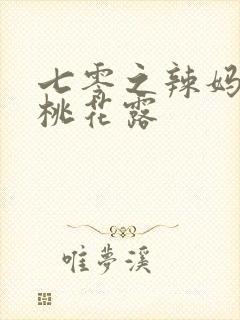 七零之辣妈
桃花露
唯夢溪